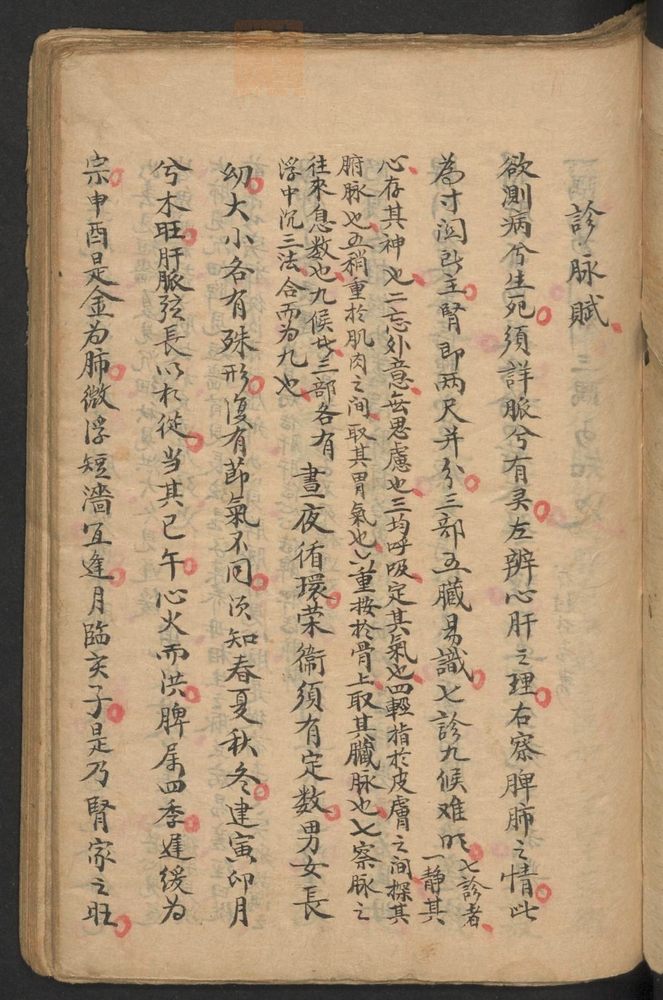 診脉賦
欲測病兮生死須詳脈兮有灵左辨心肝之理右察脾肺之情此
為寸関即主腎即两尺并分三部五臓易識七診九候难明七診者一静其
心存其神也二忘外意無思慮也三均呼吸定其氣也四輕指於皮膚之间探其
腑脉也五稍重於肌肉之间取其胃氣也六重按於骨上取其臓脉也七察脉之
往來息数也九候者三部各有
浮中沉三法合而为九也
晝夜循環荣衛須有定数男女長
幼大小各有殊形復有節氣不同須知春夏秋冬建寅卯月
兮木旺肝脈弦長以相従当其巳午心火而洪脾属四季遲缓为
宗申酉是金为肺微浮短濇宜逢月臨亥子是乃腎家之旺